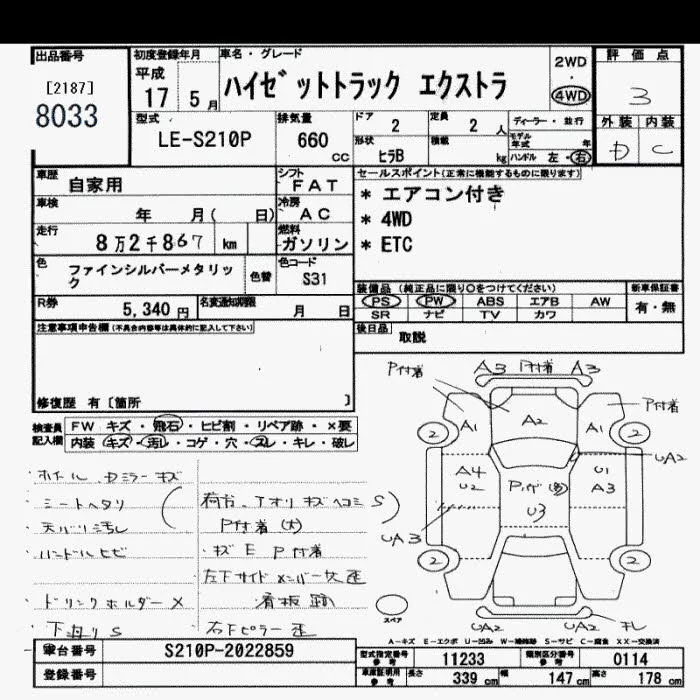 出品番号
[2187]
8033
初度登録年月
平成
17 5 月
車名・グレード
ハイゼットトラック エクストラ
2WD
・
4WD
評価点
3
外装 内装
D C
型式
LE-S210P
排気量
660
cc
ドア
2
定員
2 人
形状
ヒラB
積載
kg
ディーラー・並行
モデル
年式 年
ハンドル 左・右
車歴
自家用
シフト
FAT
車検
年 月( 日)
冷房
AC
走行
8万2千867 km
燃料
ガソリン
色
ファインシルバーメタリック
色替
色コード
S31
R券
5,340 円
名変通知期限
月 日
セールスポイント(正常に機能するものに限ります)
* エアコン付き
* 4WD
* ETC
装備品 (純正品に限り〇をつけてください)
PS PW ABS エアB AW
SR ナビ TV カワ
新車保証書
有・無
後日品
取説
注意事項申告欄(不具合内容等は具体的に記入して下さい)
修復歴 有〔箇所 〕
検査員
記入欄
FW キズ・飛石・ヒビ割・リペア跡・×要
内装 キズ・汚レ・コゲ・穴・スレ・キレ・破レ
シートヘタリ
天バリ汚レ
ハンドルヒビ
ドリンクホルダー×
下廻りS
荷台、アオリ キズ ヘコミ S
P付着(大)
・キズ E P付着
右下ピラー歪
P付着
A3 P付着 A3
P付着
A1 A2 A1
2 2
UA2
A4
U2
U3
U1
A3
UA3
2 2
スペア
UA2 UA2
A-キズ E-エクボ U-凹み W-補修跡 S-サビ C-腐食 XX-交換済
車台番号
S210P-2022859
登録番号
型式指定番号
参考
11233
類別区分番号
参考
0114
車庫証明用
参考
長さ 339 cm 幅 147 cm 高さ 178 cm